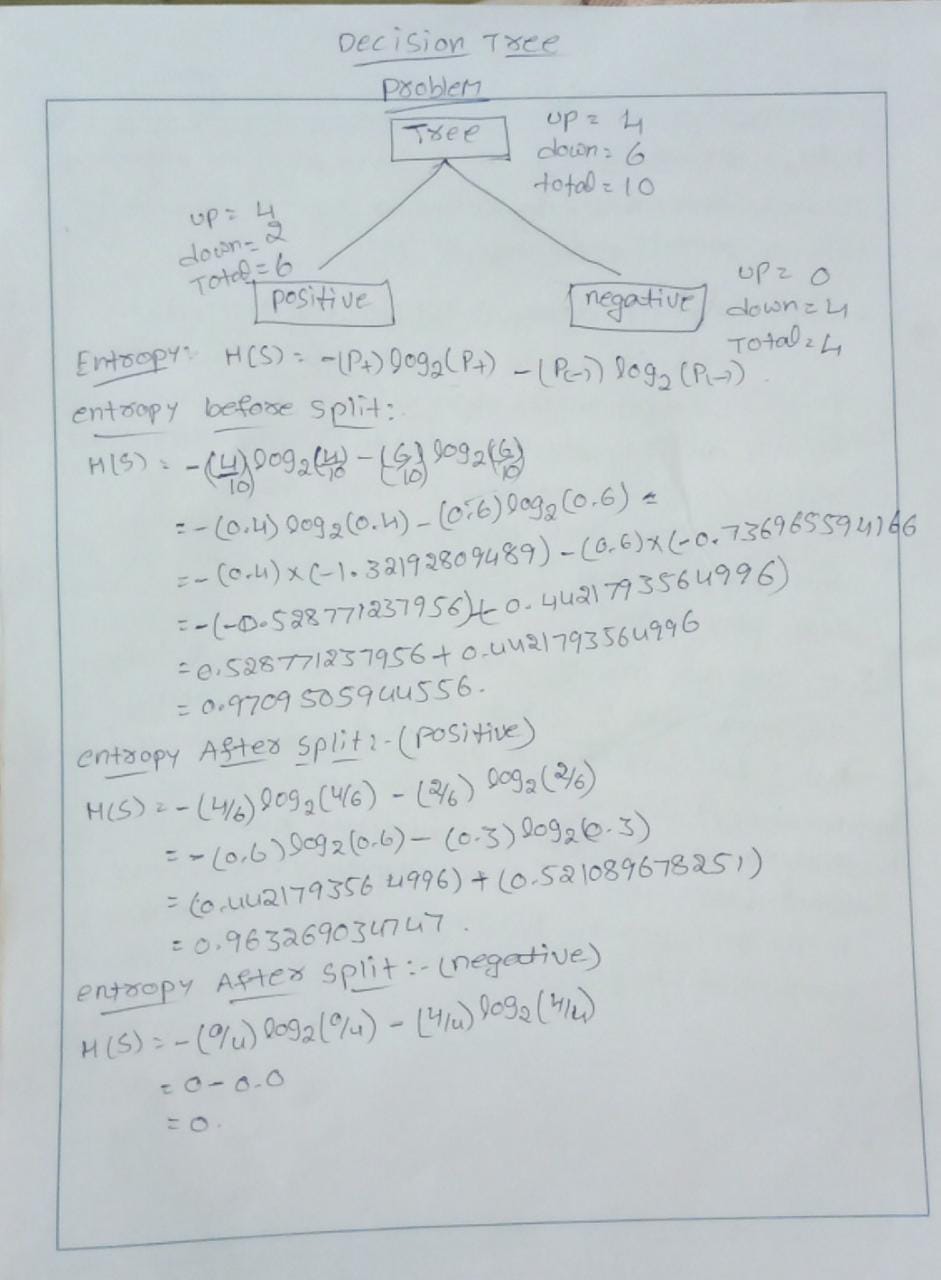 Decision Tree
Problem
Tree
up = 4
down = 6
total = 10
up = 4
down = 2
Total = 6
positive
negative
up = 0
down = 4
Total = 4
Entropy: H(S) = -(P+) log2(P+) - (P(-)) log2 (P(-))
entropy before split:
H(S) = -(4/10) log2(4/10) - (6/10) log2(6/10)
= -(0.4) log2(0.4) - (0.6) log2(0.6) =
= -(0.4) x (-1.32192809489) - (0.6) x (-0.736965594166
= -(-0.528771237956) + 0.4421793564996)
= 0.528771237956 + 0.4421793564996
= 0.9709505944556.
entropy After split:-(positive)
H(S) = -(4/6) log2(4/6) - (2/6) log2(2/6)
= -(0.6) log2(0.6) - (0.3) log2(0.3)
= (0.4421793564996) + (0.521089678251)
= 0.963269034747.
entropy After split:-(negative)
H(S) = -(0/4) log2(0/4) - (4/4) log2(4/4)
= 0 - 0.0
= 0.